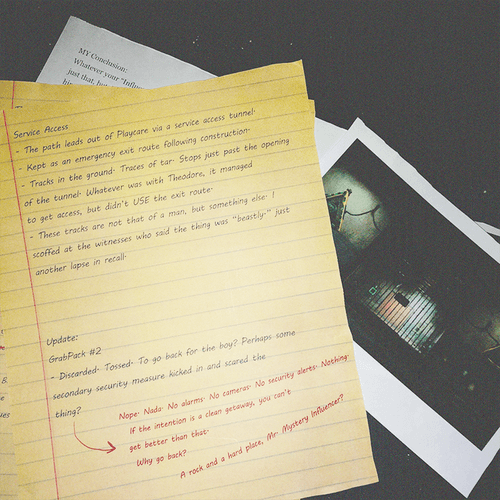 MY Conclusion:
Whatever your "Influ
just that, but
Service Access
- The path leads out of Playcare via a service access tunnel.
- Kept as an emergency exit route following construction.
- Tracks in the ground. Traces of tar. Stops just past the opening
of the tunnel. Whatever was with Theodore, it managed
to get access, but didn't USE the exit route.
- These tracks are not that of a man, but something else. I
scoffed at the witnesses who said the thing was "beastly-" just
another lapse in recall.
Update:
GrabPack #2
- Discarded. Tossed. To go back for the boy? Perhaps some
secondary security measure kicked in and scared the
thing?
Nope. Nada. No alarms. No cameras. No security alerts. Nothing.
If the intention is a clean getaway, you can't
get better than that.
Why go back?
A rock and a hard place, Mr. Mystery Influencer?